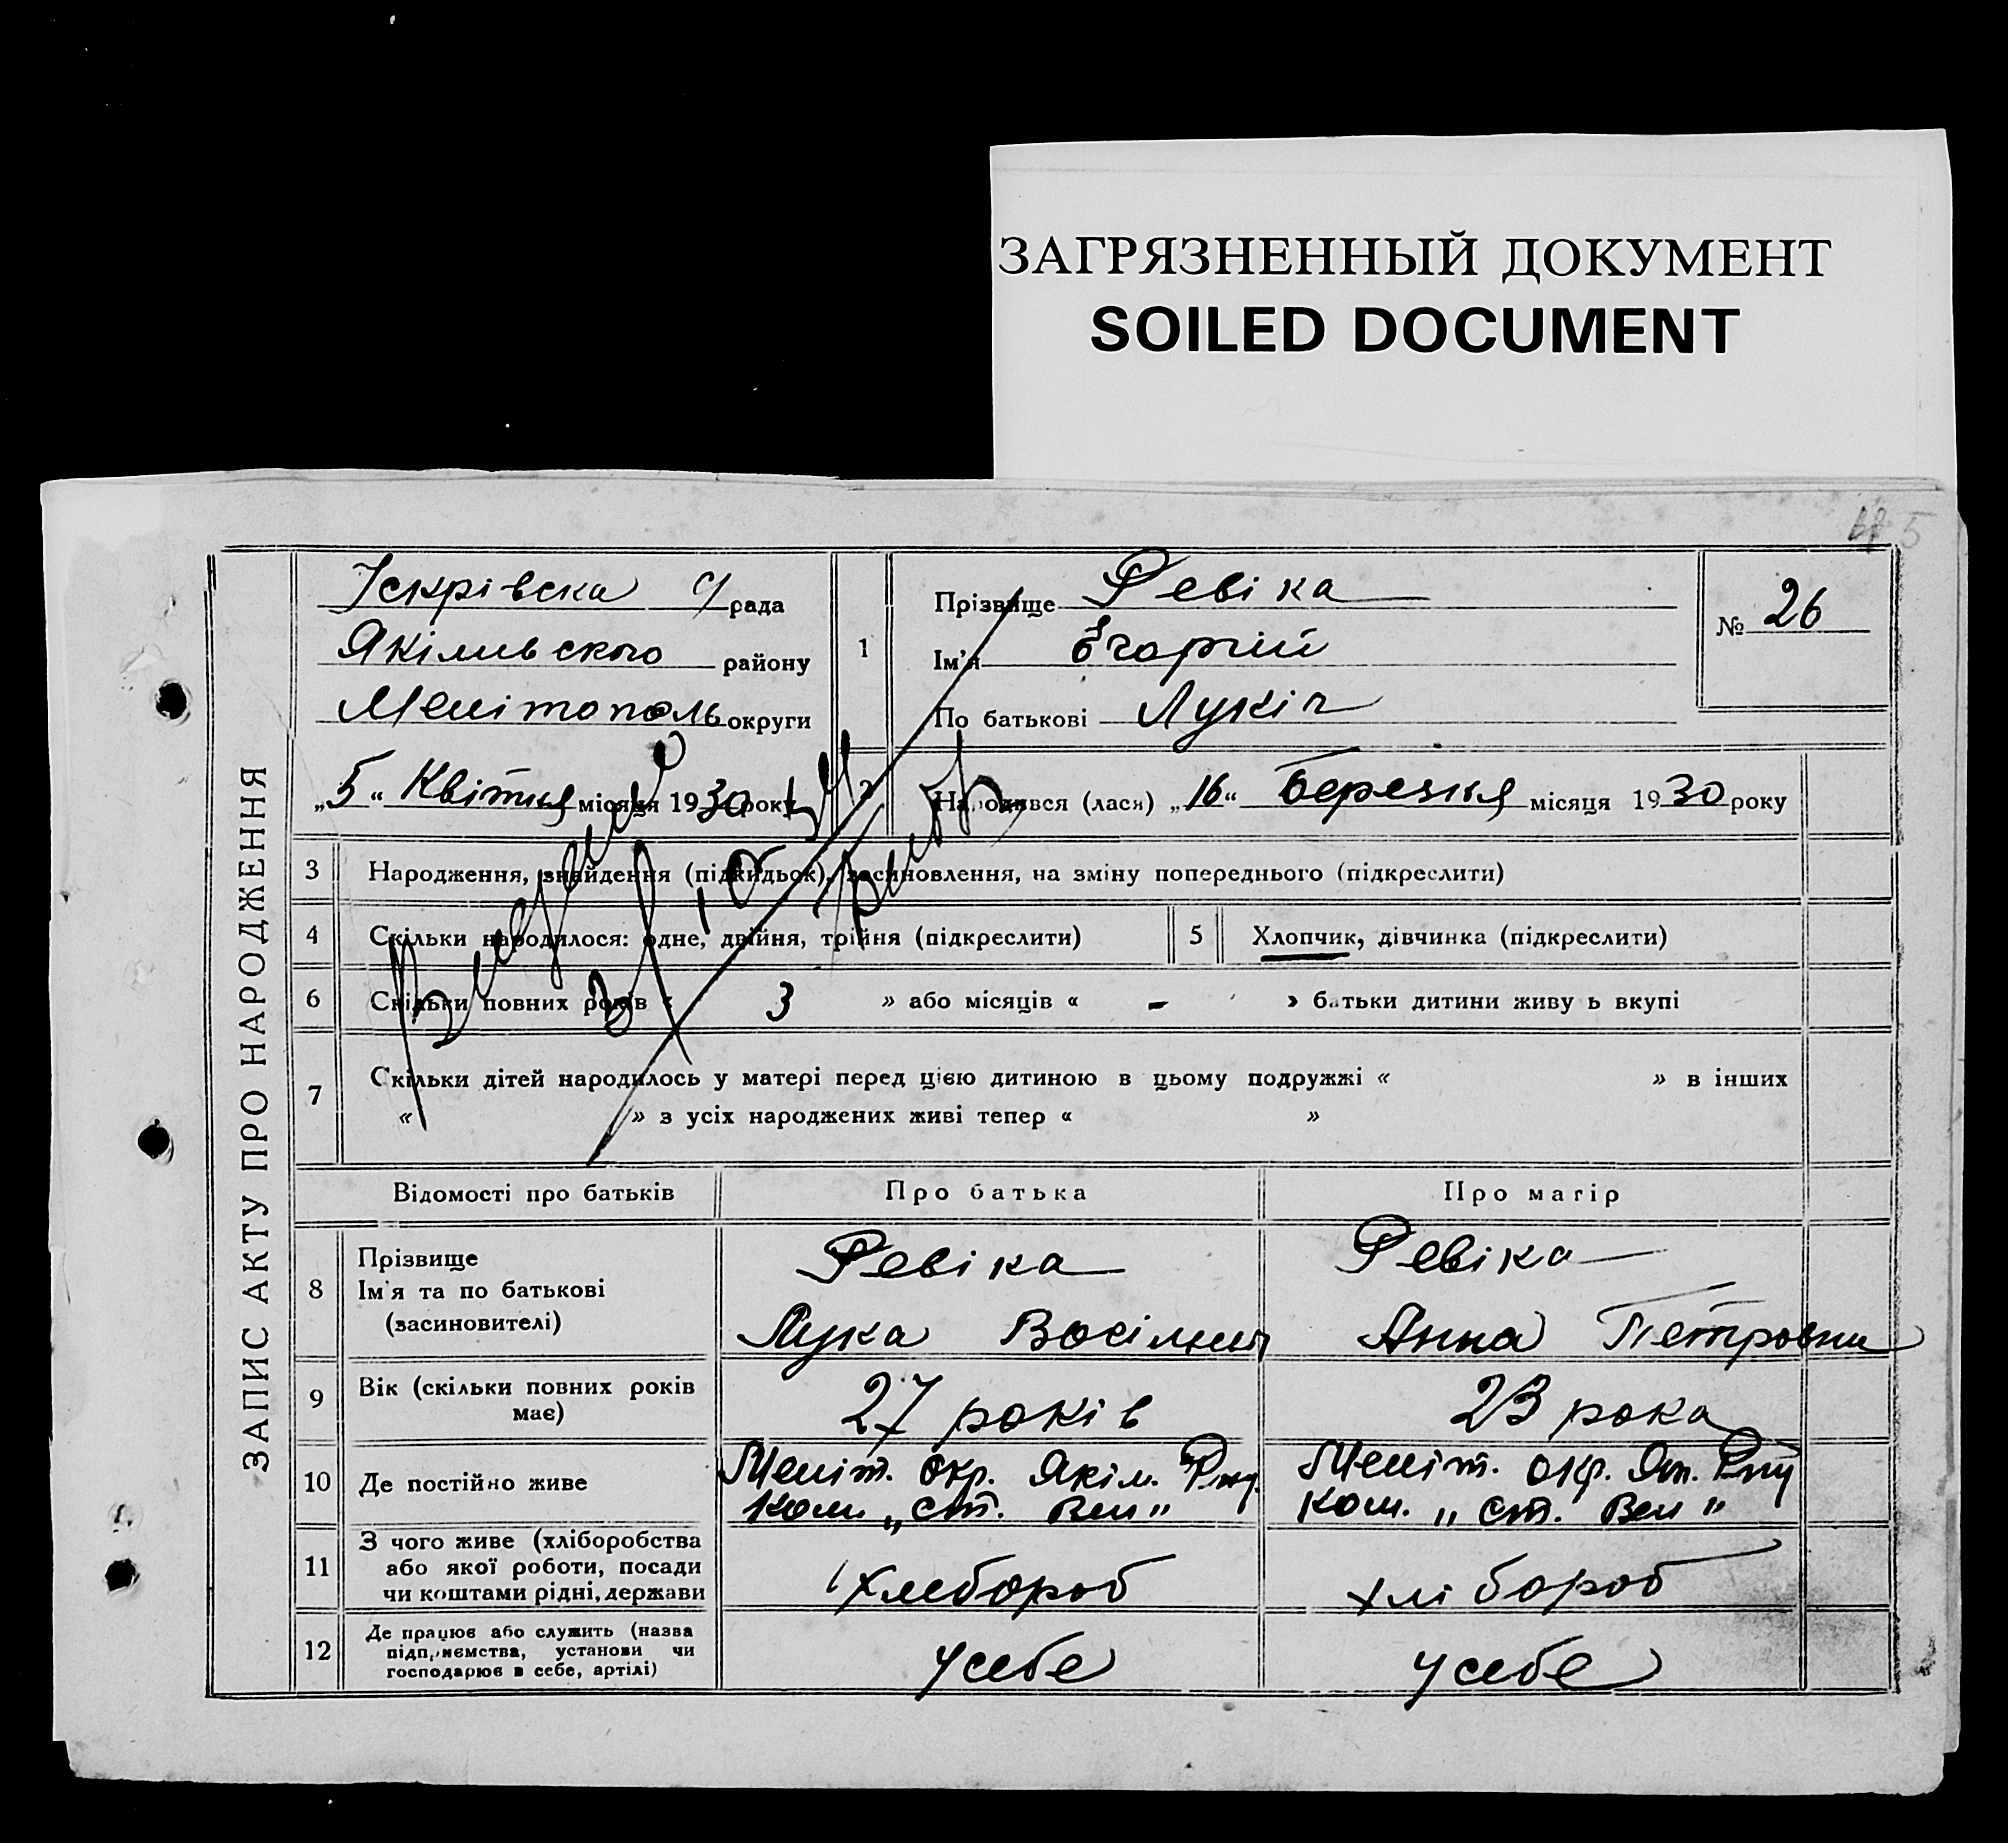 ЗАГРЯЗНЕННЫЙ ДОКУМЕНТ
SOILED DOCUMENT
5
ЗАПИС АКТУ ПРО НАРОДЖЕННЯ
Іскрівска с/рада
Якімивского району
Мелітополь округи
„5“ Квітня місяця 1930 року
1
Прізвище Ревіка
Ім'я Єгоргій
По батькові Лукіч
№ 26
2
Народився (лася) „16“ Березня місяця 1930 року
3 Народження, знайдення (підкидьок), засиновлення, на зміну попереднього (підкреслити)
4 Скільки народилося: одне, двійня, трійня (підкреслити)
5 Хлопчик, дівчинка (підкреслити)
6 Скільки повних років « 3 » або місяців « - » батьки дитини живуть вкупі
7 Скільки дітей народилось у матері перед цією дитиною в цьому подружжі « » в інших
« » з усіх народжених живі тепер « »
Відомості про батьків Про батька Про матір
8 Прізвище
Ім'я та по батькові
(засиновителі)
Ревіка
Лука
Ревіка
Анна Петровна
9 Вік (скільки повних років
має)
27 років
23 рока
10 Де постійно живе
Меліт. окр. Якім. Рну.
Кол. „Ст. Вел"
Меліт. окр. Як. Рну
Кол. „Ст. Вел"
11 З чого живе (хліборобства
або якої роботи, посади
чи коштами рідні, держави
Хлебороб
хлібороб
12 Де працює або служить (назва
підприємства, установи чи
господарює в себе, артілі)
усебе
усебе